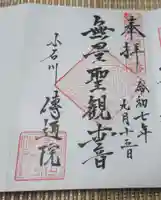 奉拝
令和七年
九月十五日
無量聖観世音
小石川
傳通院